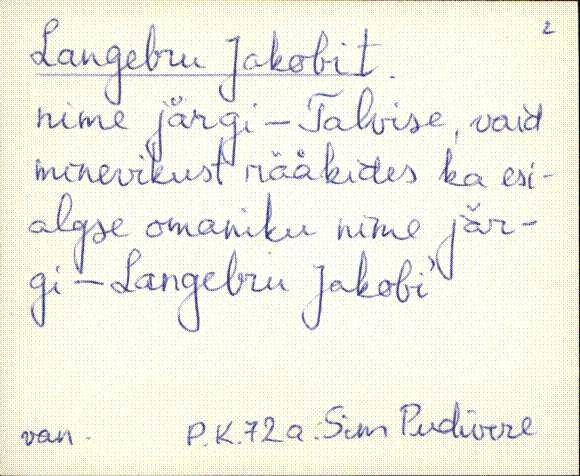 2
Langebru Jakobit.
nime järgi – Talvise, vaid
minevikust rääkides ka esi-
algse omaniku nime jär-
gi – Langebru Jakobi"
van. P.K. 72 a. Sim Pudivere